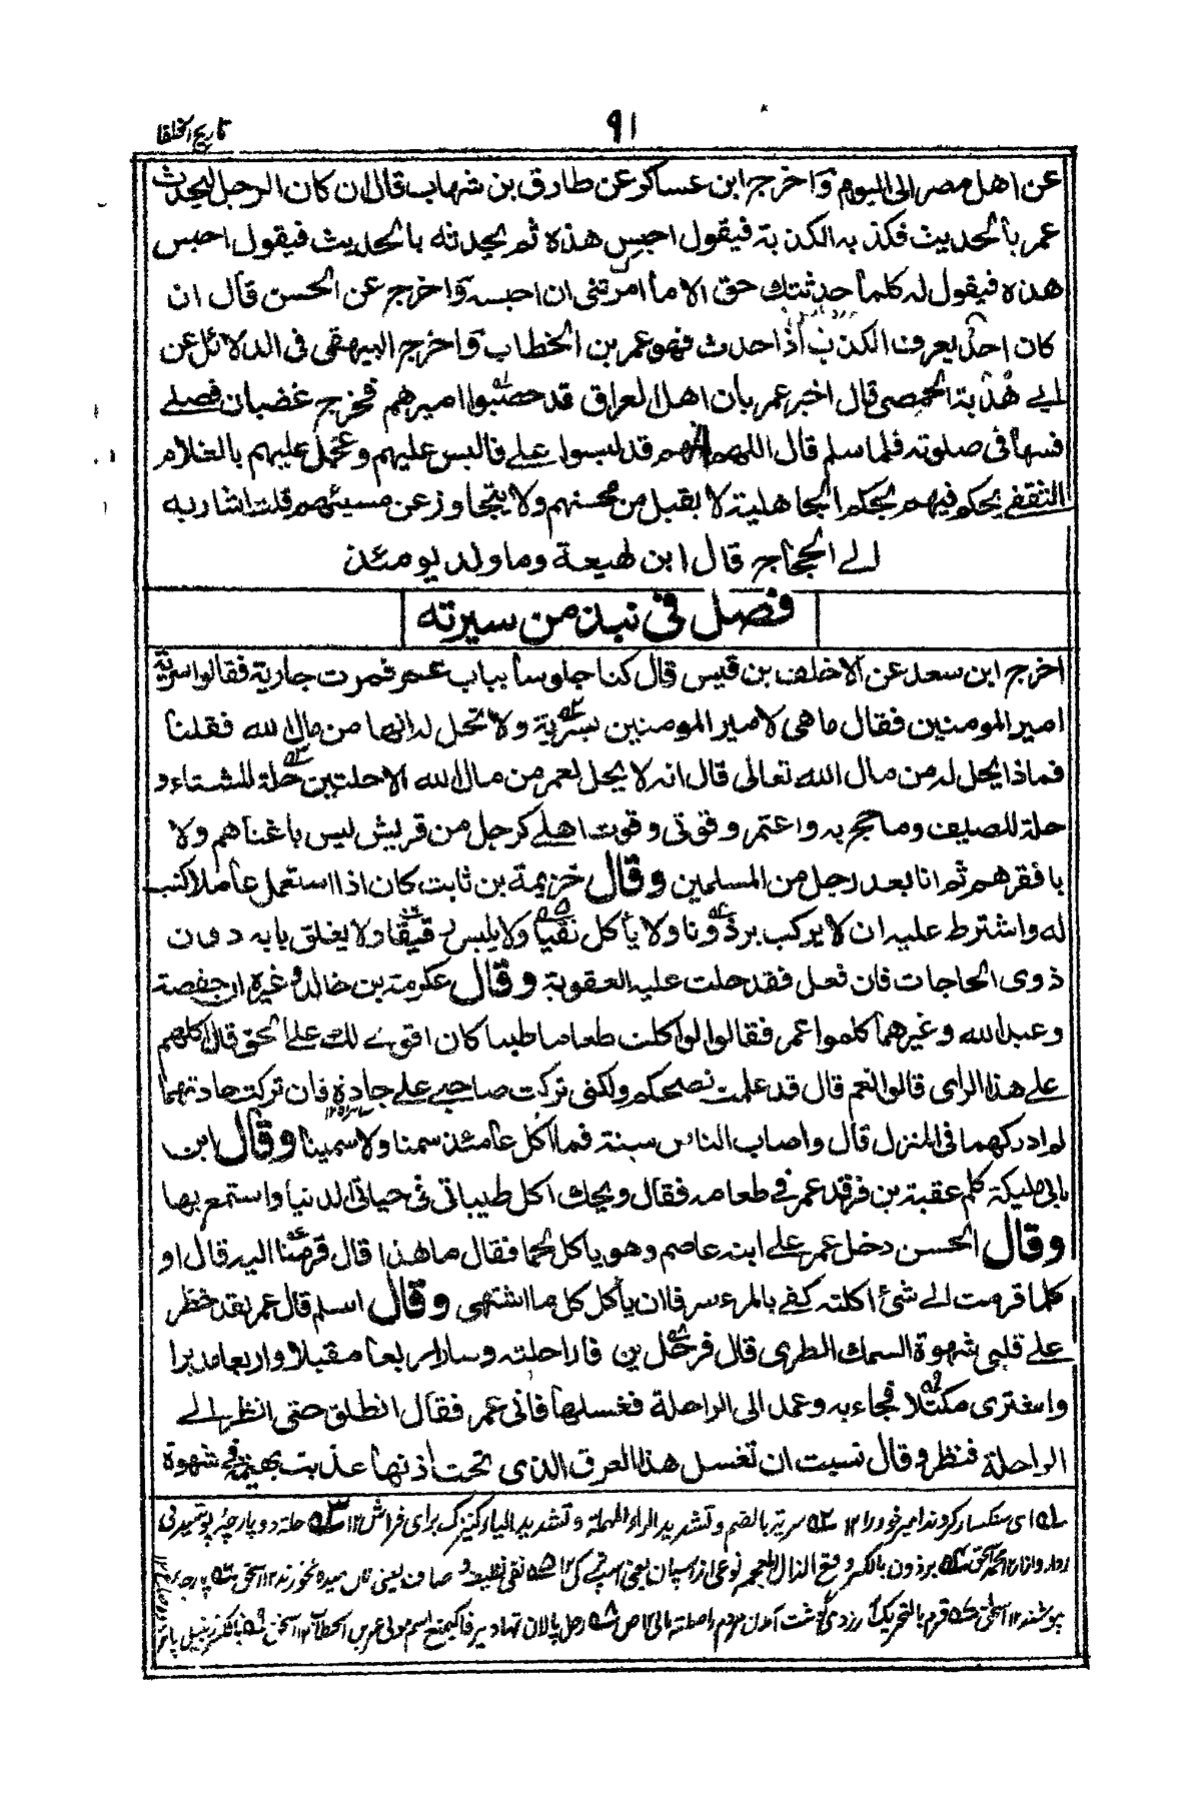 تاريخ الخلفا
٩١
عن اهل مصر الى اليوم واخرج ابن عساكر عن طارق بن شهاب قال ان كان الرجل ليحدث
عمر بالحديث فكذبه الكذبة فيقول احبس هذه ثم يحدثه بالحديث فيقول احبس
هذه فيقول له كلما حدثتك حق الا ما امرتنى ان احبسه واخرج عن الحسن قال ان
كان احد يعرف الكذب اذا حدث فهو عمر بن الخطاب واخرج البيهقى فى الدلائل عن
ابے هُدْبة الحمصى قال اخبر عمر بان اهل العراق قد حصبوا اميرهم فخرج غضبان فصلے
فسها فى صلوته فلما سلم قال اللهم انهم قد لبسوا علے فالبس عليهم وعجل عليهم بالغلام
الثقفے يحكم فيهم بحكم الجاهلية لا يقبل من محسنهم ولا يتجاوز عن مسيئهم قلت اشار به
الے الحجاج قال ابن لهيعة وما ولد يومئذ
فصل فى نبذ من سيرته
اخرج ابن سعد عن الاخلف بن قيس قال كنا جلوسا بباب عمر فمرت جارية فقالوا سرية
امير المومنين فقال ما هى لامير المومنين بسرية ولا تحل له انها من مال الله فقلنا
فماذا يحل له من مال الله تعالى قال انه لا يحل لعمر من مال الله الا حلتين حلة للشتاء و
حلة للصيف وما حج به واعتمر وقوتى وقوت اهلے كرجل من قريش ليس باغناهم ولا
بافقرهم ثم انا بعد رجل من المسلمين وقال خزيمة بن ثابت كان اذا استعمل عاملا كتب
له واشترط عليه ان لا يركب برذونا ولا يأكل نقيا ولا يلبس رقيقا ولا يغلق بابه دون
ذوى الحاجات فان فعل فقد حلت عليه العقوبة وقال عكرمة بن خالد وغيره ان حفصة
وعبد الله وغيرهما كلموا عمر فقالوا لو اكلت طعاما طيبا كان اقوے لك علے الحق قال اكلهم
علے هذا الراى قالوا نعم قال قد علمت نصحكم ولكنى تركت صاحبے علے جادة فان تركت جادتهما
لم ادركهما فى المنزل قال واصاب الناس سنة فما اكل عامئذ سمنا ولا سمينا وقال ابن
ابى مليكة كلم عقبة بن فرقد عمر فے طعامه فقال ويحك اكل طيباتى فى حياتى الدنيا واستمتع بها
وقال الحسن دخل عمر علے ابنه عاصم وهو ياكل لحما فقال ما هذا قال قرمنا اليه قال او
كلما قرمت الے شئ اكلته كفے بالمرء سرفا ان يأكل كل ما اشتهى وقال اسلم قال عمر لقد خطر
علے قلبى شهوة السمك الطرى قال فرحل يرفا راحلته وسار اربعا مقبلا واربعا مدبرا
واشترى مكتلا فجاء به وعمد الى الراحلة فغسلها فاتى عمر فقال انطلق حتى انظر الے
الراحلة فنظر وقال نسيت ان تغسل هذا العرق الذى تحت اذنها عذبت بهيمة فے شهوة
اے سنگسار كردند امير خود را ١٢ سرية بالضم وتشديد الراء المهملة وتشديد الياء كنيزك براى فراش ١٢ حلة دو پارچه پوشيدنى
برذون بالكسر وفتح الذال المعجمة نوعى از اسپان نقى
قرم بالتحريك رحل پالان نهاد